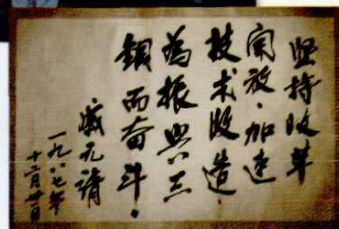 坚持改革
开放·加速
技术改造·
为振兴三
钢而奋斗·
戚元靖
一九八七年
十二月廿日